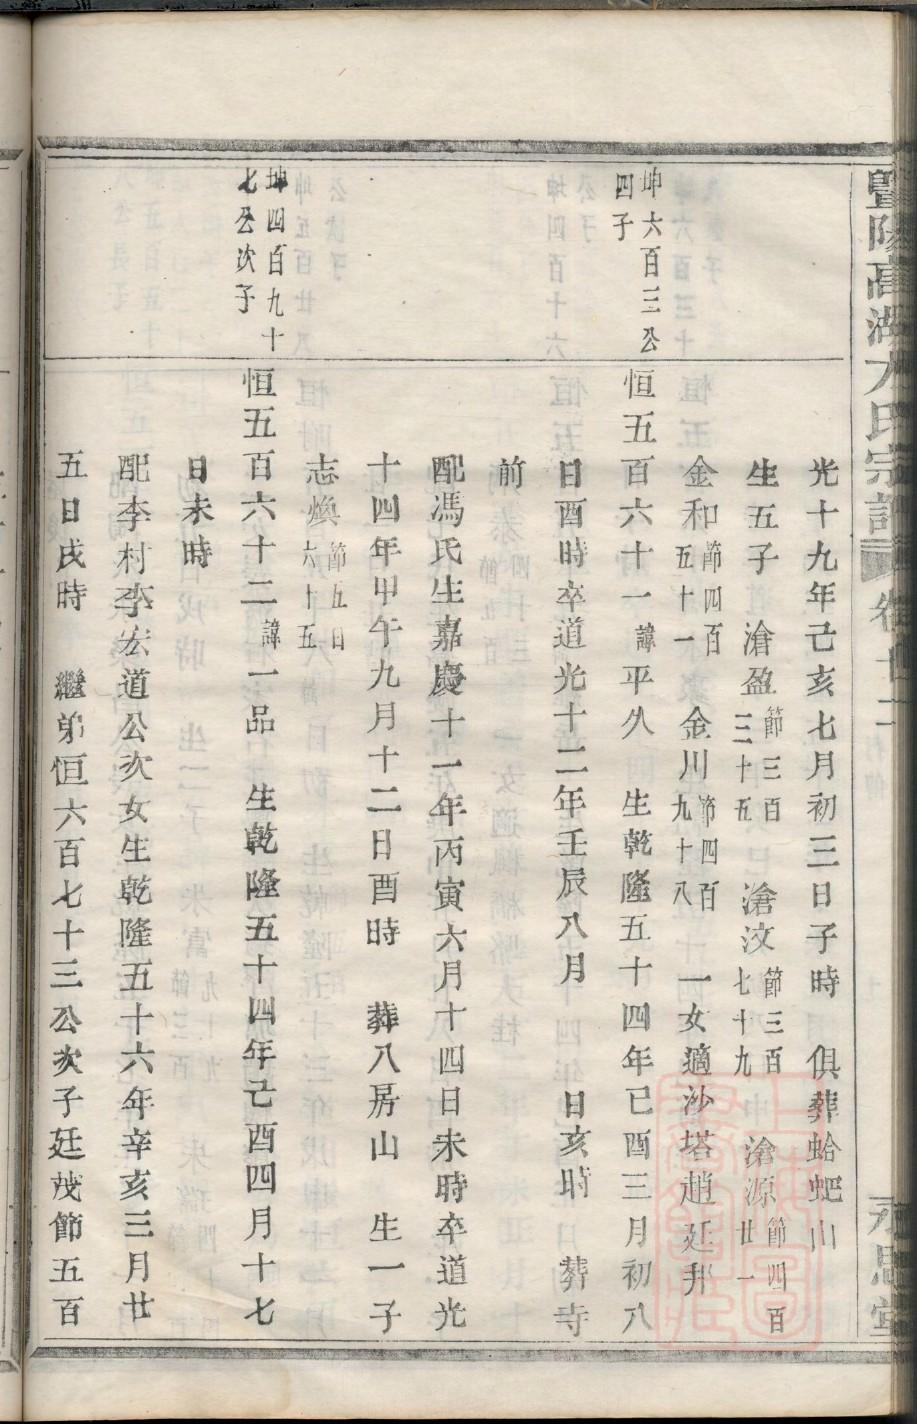 暨陽高湖方氏宗譜 卷廿二 永思堂
光十九年己亥七月初三日子時 俱葬蛤蚆山
生五子 滄盈節三百三十五 滄汶節三百七十九 滄源節四百廿一
金和節四百五十一 金川節四百九十八 一女適沙塔趙廷邦
坤六百三公四子
恒五百六十一諱平八 生乾隆五十四年已酉三月初八
日酉時卒道光十二年壬辰八月 日亥時 葬寺
前
配馮氏生嘉慶十一年丙寅六月十四日未時卒道光
十四年甲午九月十二日酉時 葬八房山 生一子
志煥節五百六十五
坤四百九十七公次子
恒五百六十二諱一品 生乾隆五十四年己酉四月十七
日未時
配李村李宏道公次女生乾隆五十六年辛亥三月廿
五日戌時 繼弟恒六百七十三公次子廷茂節五百